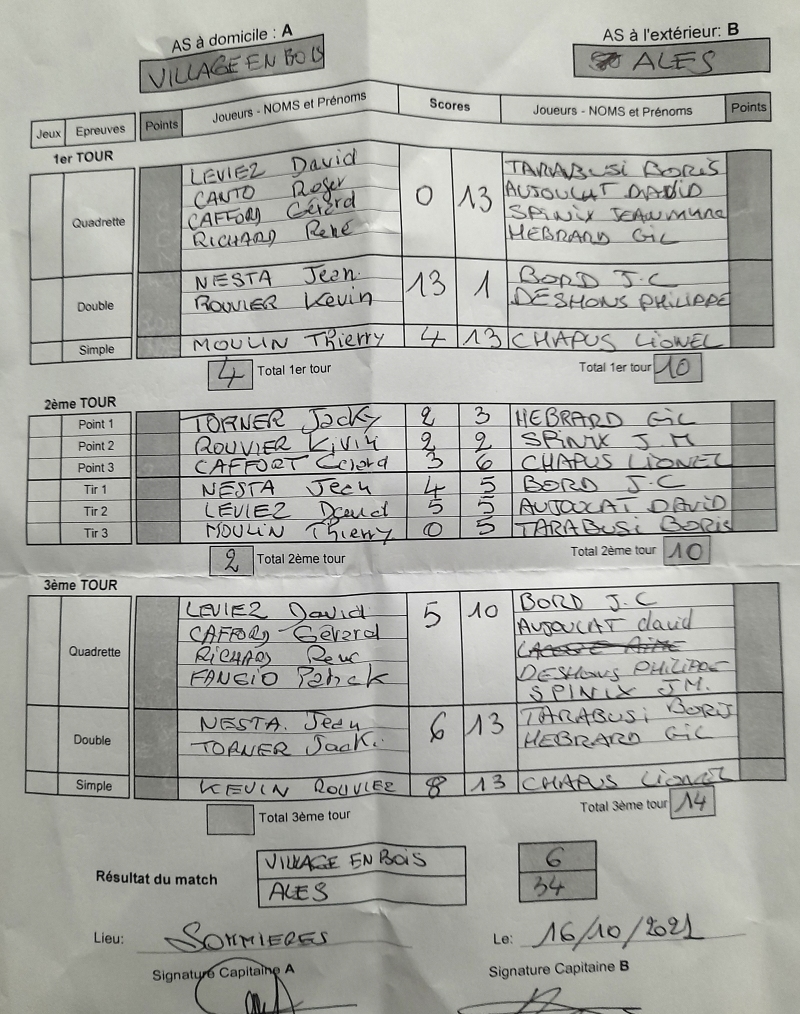 AS à domicile : A AS à l'extérieur: B
VILLAGE EN BOIS ALES
Jeux Epreuves Points Joueurs - NOMS et Prénoms Scores Joueurs - NOMS et Prénoms Points
1er TOUR
LEVIEZ David TARABUSI BORIS
CANTO Roger AUJOULAT DAVID
Quadrette 0 13
CAFFORD Gérard SPINIX JEAN MARC
RICHARD René HEBRARD GIL
NESTA Jean BORD J.C
Double 13 1
ROUVIER Kevin DESHONS PHILIPPE
Simple MOULIN Thierry 4 13 CHAPUS LIONEL
4 Total 1er tour Total 1er tour 10
2ème TOUR
Point 1 TORNER Jacky 2 3 HEBRARD GIL
Point 2 ROUVIER Kivin 2 2 SPINIX J.M
Point 3 CAFFORT Gerard 3 6 CHAPUS LIONEL
Tir 1 NESTA Jean 4 5 BORD J.C
Tir 2 LEVIEZ David 5 5 AUJOULAT DAVID
Tir 3 MOULIN Thierry 0 5 TARABUSI BORIS
2 Total 2ème tour Total 2ème tour 10
3ème TOUR
LEVIEZ David 5 10 BORD J.C
CAFFORD Gérard AUJOULAT david
Quadrette
RICHARD René
FANGIO Patrick DESHONS PHILIPPE
SPINIX JM.
NESTA. Jean TARABUSI BORIS
Double 6 13
TORNER Jack. HEBRARD GIL
Simple KEVIN ROUVIER 8 13 CHAPUS Lionel
Total 3ème tour Total 3ème tour 14
Résultat du match
VILLAGE EN BOIS 6
ALES 34
Lieu: SOMMIERES Le: 16/10/2021
Signature Capitaine A Signature Capitaine B